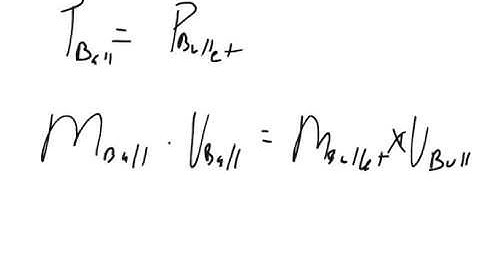 P_Ball = P_Bullet
M_Ball · V_Ball = M_Bullet × V_Bull